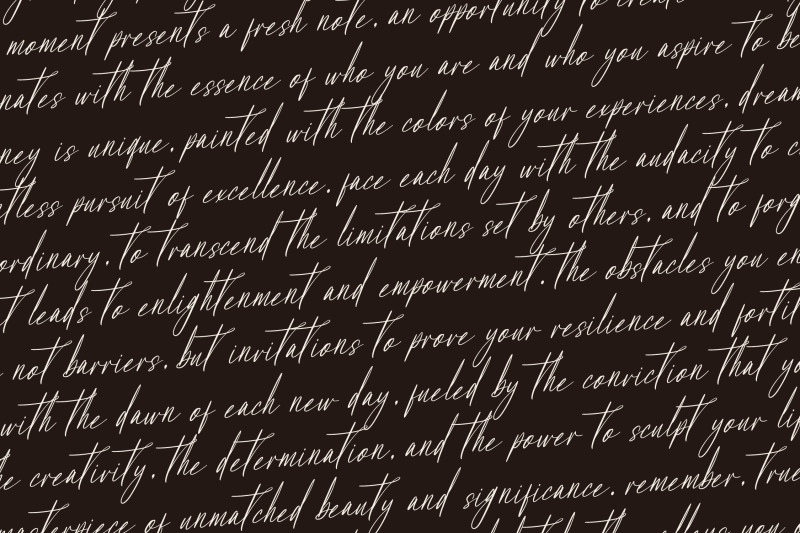 moment presents a fresh note. an opportunity to create
nates with the essence of who you are and who you aspire to be
ney is unique. painted with the colors of your experiences. dream
tless pursuit of excellence. face each day with the audacity to c
ordinary. to transcend the limitations set by others. and to forg
t leads to enlightenment and empowerment. the obstacles you en
not barriers. but invitations to prove your resilience and fortit
with the dawn of each new day. fueled by the conviction that yo
e creativity. the determination. and the power to sculpt your lif
masterpiece of unmatched beauty and significance. remember. true
allows you